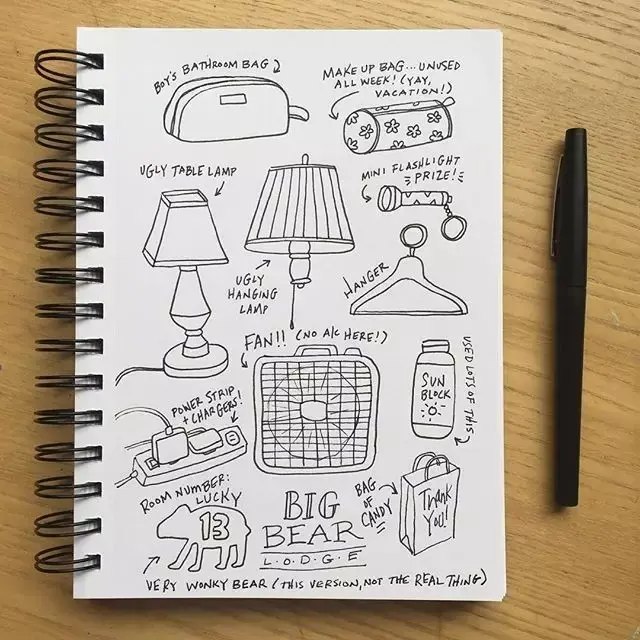 BOY'S BATHROOM BAG
MAKE UP BAG...UNUSED
ALL WEEK! (YAY,
VACATION!)
UGLY TABLE LAMP
MINI FLASHLIGHT
PRIZE!
UGLY
HANGING
LAMP
HANGER
FAN!! (NO A/C HERE!)
SUN
BLOCK
USED LOTS OF THIS
POWER STRIP
+ CHARGERS!
ROOM NUMBER:
LUCKY
13
BIG
BEAR
L·O·D·G·E
BAG
OF
CANDY
THANK
YOU!
VERY WONKY BEAR (THIS VERSION, NOT THE REAL THING)